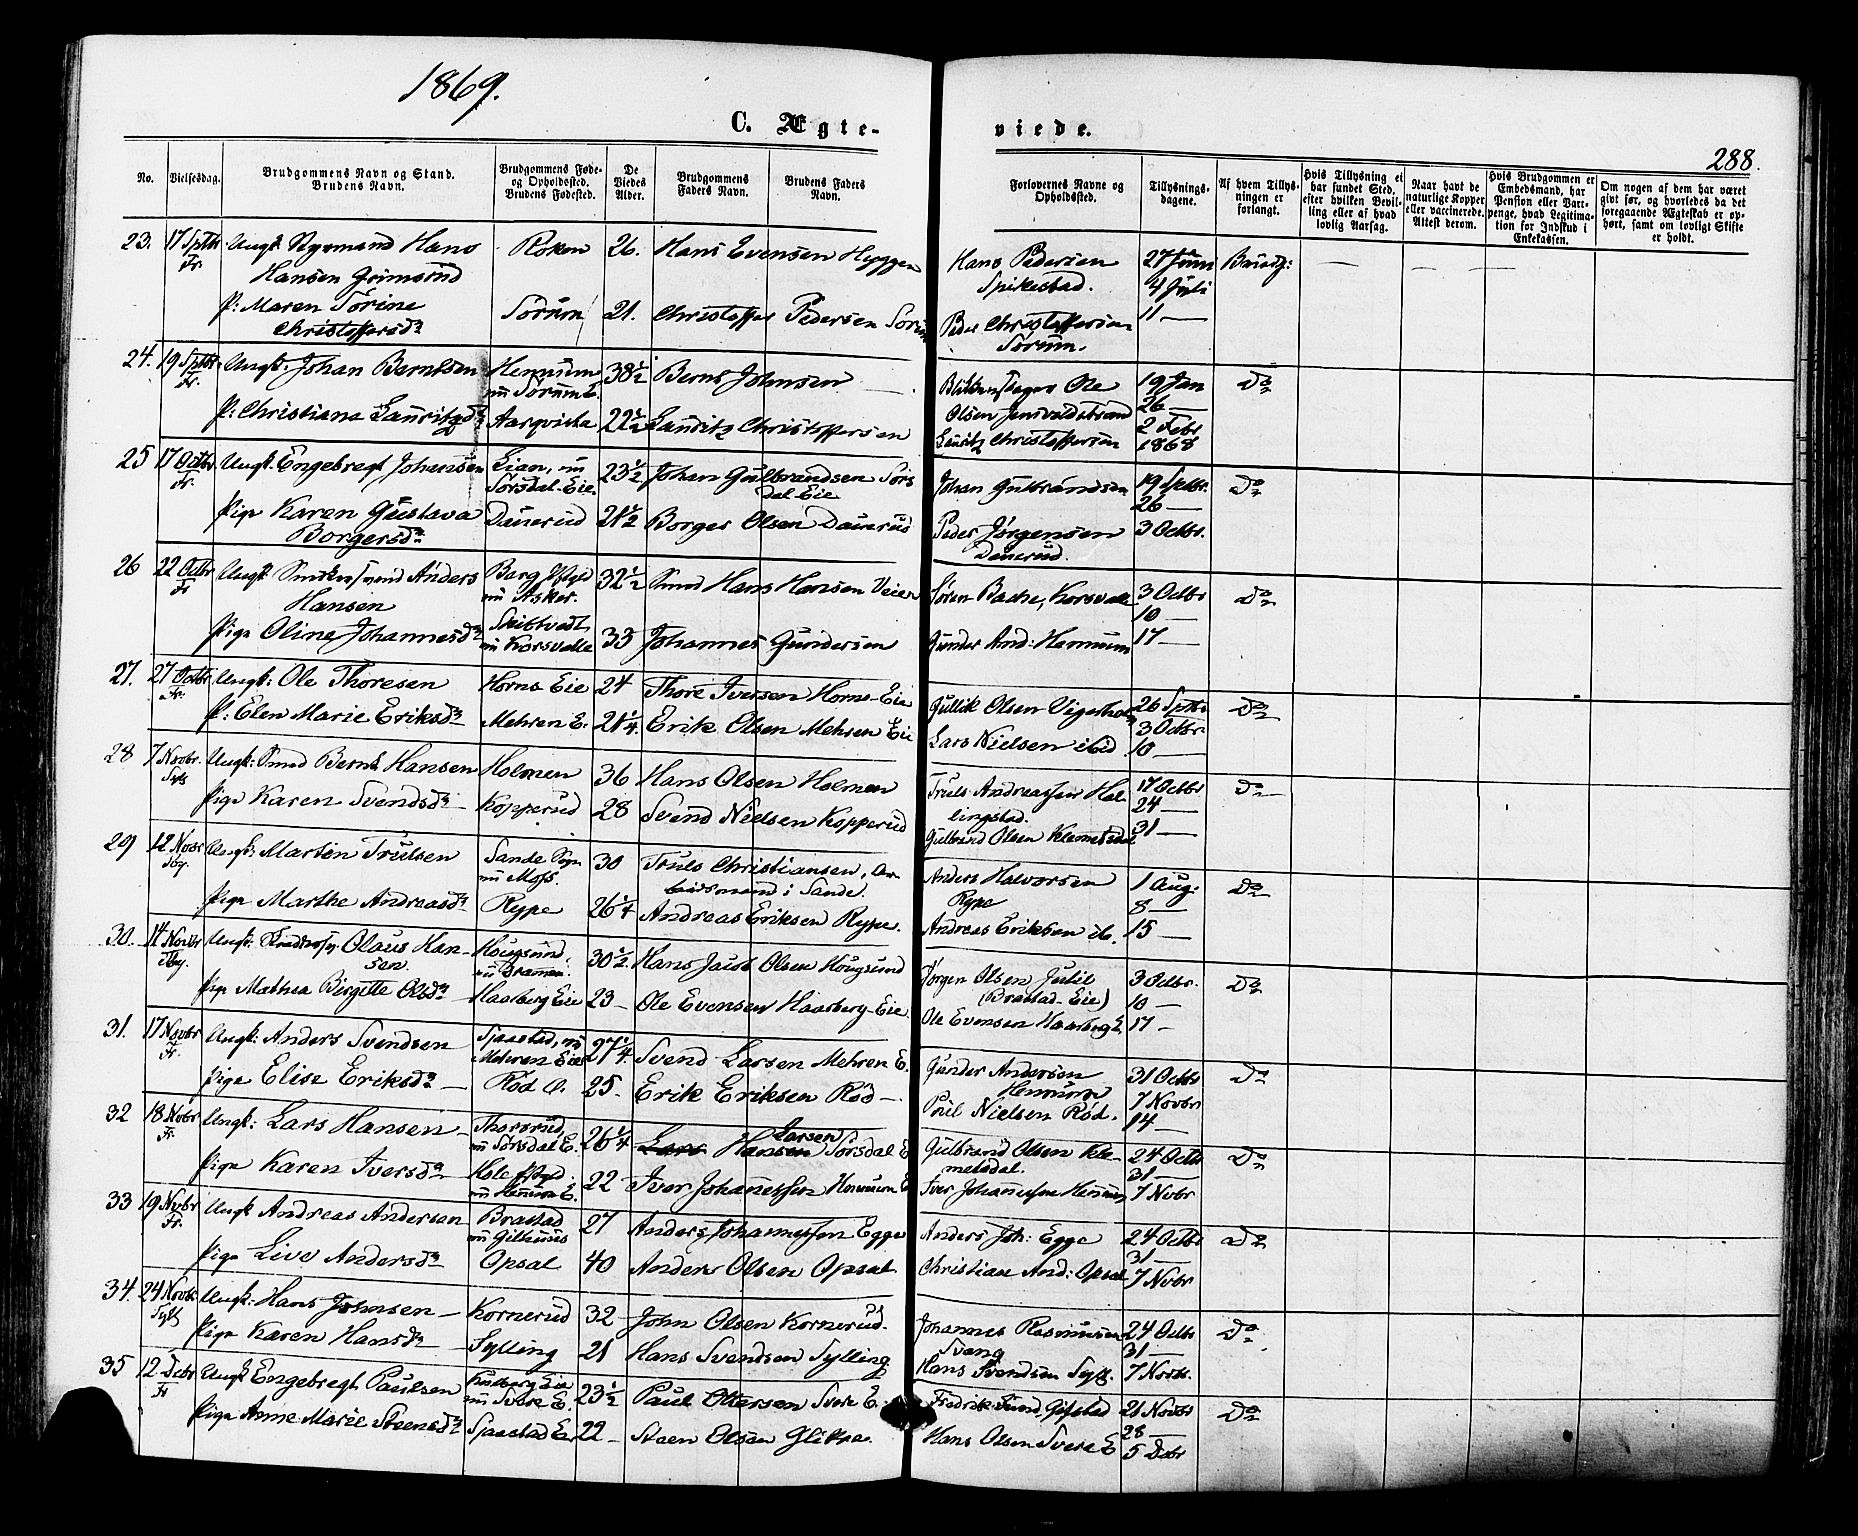 1869.
C. Ægte-
viede.
288.
No.
Vielsesdag.
Brudgommens Navn og Stand.
Brudens Navn.
Brudgommens Føde-
og Opholdsted.
Brudens Fødested.
De
Viedes
Alder.
Brudgommens
Faders Navn.
Brudens Faders
Navn.
Forlovernes Navne og
Opholdsted.
Tillysnings-
dagene.
Af hvem Tillys-
ningen er
forlangt.
Hvis Tillysning ei
har fundet Sted.
efter hvilken Bevil-
ling eller af hvad
lovlig Aarsag.
Naar havt de
naturlige Kopper
eller vaccinerede.
Attest derom.
Hvis Brudgommen er
Embedsmand, har
Pension eller Vart-
penge, hvad Legitima-
tion for Indskud i
Enkekassen.
Om nogen af dem har været
givt før, og hvorledes da det
foregaaende Ægteskab er op-
hørt, samt om lovligt Skifte
er holdt.
23. 17 Septbr Ungk. Styrmand Hans Røken 26. Hans Evensen Hyggen Hans Pedersen 27 Juni
Fr. Hansen Grimsrud Spikestad. 4 Juli
P: Maren Sørine Sørum 21. Christoffer Pedersen Sørum Peder Christoffersen 11 —
Christoffersd. Sørum.
24. 19 Septbr Ungk: Johan Berntsen Hennum 38½ Bernt Johnsen Ole 19 Jan Do
Fr. nu Sørum E. 26 —
P: Christiane Lauritzd. 22½ Lauritz Christoffersen Olsen 2 Febr
Lauritz Christoffersen 1868
25 17 Octbr Ungk. Engebregt Johansen Lian, nu 23½ Johan Gulbrandsen Sørs Johan Gulbrandsen 19 Septbr. Do
Fr. Sørsdal-Eie. dal Eie 26 —
Pige Karen Gustava Dauerud 21½ Borger Olsen Dauerud Peder Jørgensen 3 Octbr.
Borgersd. Dauerud.
26 22 Octbr Ungk. Anders 32½ Smed Hans Hansen Veien Søren Bache, Korsvalle 3 Octbr Do
Fr Hansen nu Asker. 10 —
Pige Oline Johannesd. nu Korsvalle 33 Johannes Gundersen Gunder And: Hennum 17 —
27. 27 Octbr Ungk: Ole Thoresen Horns Eie 24 Thore Iversen Horns-Eie Gullik Olsen 26 Septbr Do
Fr. P: Elen Marie Eriksd. Mehren E. 21¼ Erik Olsen Mehren Eie Lars Nielsen ibid 3 Octbr.
10 —
28 7 Novbr. Ungk: Smed Bernt Hansen Holmen 36 Hans Olsen Holmen Truls Andreassen Hal- 17 Octbr Do
Pige Karen Svendsd. Kopperud 28 Svend Nielsen Kopperud lingstad. 24 —
Gulbrand Olsen Klemetsdal 31 —
29 12 Novbr Ungk: Martin Trulsen Sande Sogn 30 Truls Christiansen, Ar- Anders Halvorsen 1 Aug: Do
nu Moss. beidsmand i Sande. Rype 8 —
Pige Marthe Andreasd. Rype 26¼ Andreas Eriksen Rype. Andreas Eriksen ib. 15 —
30. 14 Novbr Ungk: Olaus Han- Hougsund, 30½. Hans Jacob Olsen Hougsund Jørgen Olsen 3 Octbr. Do
sen. nu Dramen. (Brastad-Eie) 10 —
Pige Mathea Birgitte Olsd. Haarberg Eie 23 — Ole Evensen Haarberg-Eie. Ole Evensen Haarberg E. 17 —
31. 17 Novbr Ungk: Anders Svendsen Sjaastad, nu 27¼. Svend Larsen Mehren E. Gunder Andersen 31 Octbr Do
Fr. Mehren Eie Hennum 7 Novbr
Pige Elise Eriksd. Rød 25. Erik Eriksen Rød — Poul Nielsen Rød. 14 —
32 18 Novbr Ungk: Lars Hansen Thorsrud, 26¼ Lars Hansen Larsen Sørsdal E Gulbrand Olsen Kle- 24 Octbr Do
Fr. nu Sørsdal E. metsdal. 31 —
Pige Karen Iversd. nu Hennum E. 22 — Iver Johannessen Hennum E Iver Johannessen Hennum 7 Novbr
33 19 Novbr Ungk Andreas Andersen Brastad 27 Anders Johannessen Egge Anders Joh: Egge 24 Octbr Do
Fr. nu Gilhuus 31 —
Pige Live Andersd. Opsal 40 Anders Olsen Opsal Christian And: Opsal 7 Novbr
34. 24 Novbr. Ungk: Hans Johnsen Kornerud 32 John Olsen Kornerud. Johannes Rasmussen 24 Octbr Do
Svang 31 —
Pige Karen Hansd. Sylling 21 Hans Svendsen Sylling Hans Svendsen Syll. 7 Novbr.
35 12 Debr Ungk Engebregt Paulsen 23½ Paul Ottersen Svere E. Fredrik Lund, Gifstad 21 Novbr Do
Fr nu Svere E. 28 —
Pige Anne Marie Steensd. Sjaastad E. 22 — Steen Olsen Glitre. Hans Olsen Svere E 5 Debr